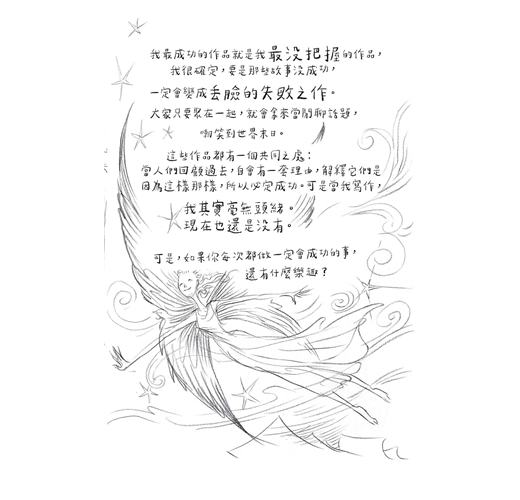 我最成功的作品就是我最沒把握的作品，
我很確定，要是那些故事沒成功，
一定會變成丟臉的失敗之作。
大家只要聚在一起，就會拿來當閒聊話題，
嘲笑到世界末日。
這些作品都有一個共同之處：
當人們回顧過去，自會有一套理由，解釋它們是
因為這樣那樣，所以必定成功。可是當我寫作，
我其實毫無頭緒。
現在也還是沒有。
可是，如果你每次都做一定會成功的事，
還有什麼樂趣？